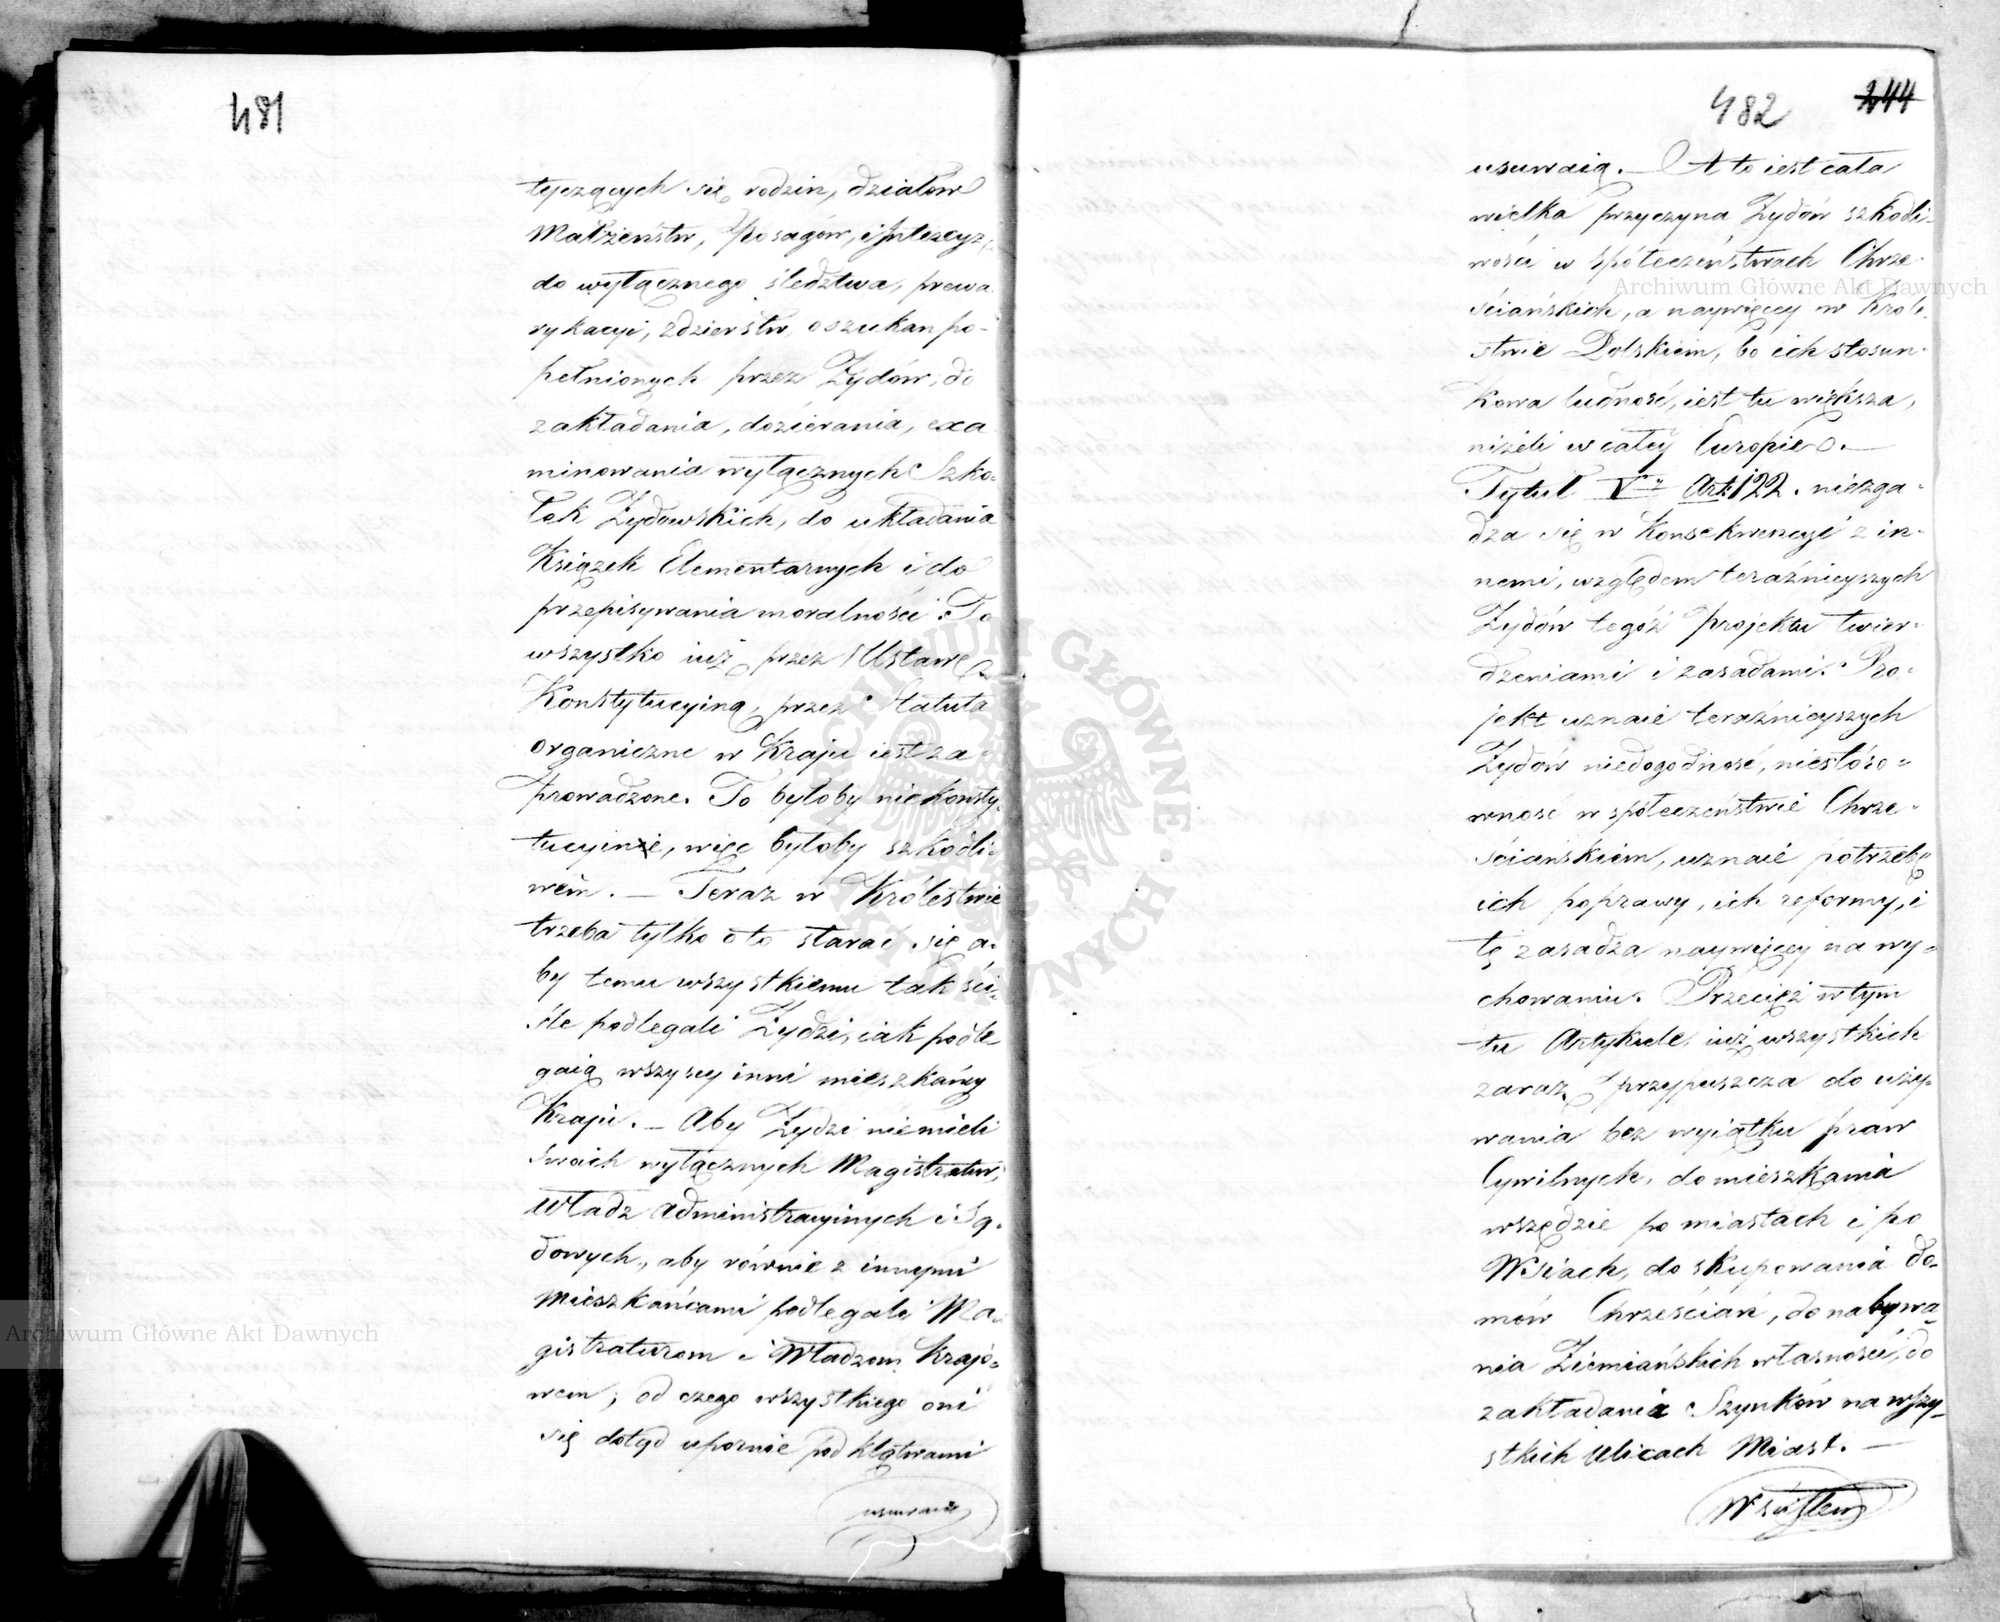 481
tyczących się rodzin, działów
Małżeństw, Posagów, i Intercyz,
do wyłącznego śledztwa, prewa
rykacyi, zdzierstw, oszukań po-
pełnionych przez Żydów, do
zakładania, dozierania, exa
minowania wyłącznych Szko-
łek Żydowskich, do układania
Książek Elementarnych i do
przepisywania moralności. To
wszystko iuż przez Ustawę
Konstytucyiną, przez Statuta
organiczne w Kraju iest za-
prowadzone. To byłoby niekonsty-
tucyinie, więc byłoby szkodli-
wém. — Teraz w Królestwie
trzeba tylko o to starać się a-
by temu wszystkiemu tak ści-
śle podlegali Żydzi, iak podle
gaią wszyscy inni mieszkańcy
Kraju. — Aby Żydzi niemieli
swoich wyłącznych Magistratur,
Władz administracyinych i Są-
dowych, aby równie z innymi
Mieszkańcami podlegali Ma-
gistraturom i Władzom Krajo-
wem, od czego wszystkiego oni
się dotąd upornie pod klątwami
usuwaią
482 244
usuwaią. — A to iest cała
wielka przyczyna Żydów szkodli-
wości w społeczeństwach Chrze-
ściańskich, a naywięcey w Króle-
stwie Polskiém, bo ich stosun-
kowa ludność, iest tu większa,
niżeli w całéy Europie. —
Tytuł V. Art: 122. niezga-
dza się w Konsekwencyi z in-
nemi, względem teraźnieyszych
Żydów tegóż Projektu twier-
dzeniami i zasadami. Pro-
jekt uznaie teraźnieyszych
Żydów niedogodność, niestóso-
wność w społeczeństwie Chrze-
ściańskiém, uznaie potrzebę
ich poprawy, ich reformy, i
tę zasadza naywięcey na wy-
chowaniu. Przecięż w tym
tu Artykule, iuż wszystkich
zaraz przypuszcza do uży-
wania bez wyiątku praw
Cywilnych, do mieszkania
wszędzie po miastach i po
Wsiach, do skupowania do-
mów Chrześcian, do nabywa-
nia Ziemiańskich własności, do
zakładania Szynków na wszy-
stkich Ulicach Miast. —